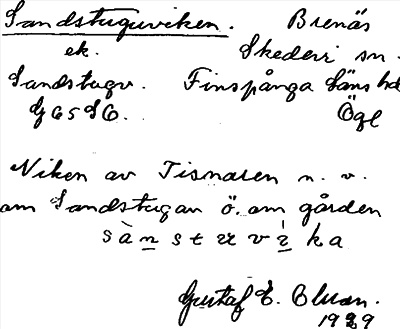 Sandstuguviken. Brenäs
ek. Skedevi sn.
Sandstugv. Finspånga läns hd
G 65 S6. Ögl
Viken av Tisnaren n. v.
om Sandstugan ö. om gården
Gustaf E.
1929